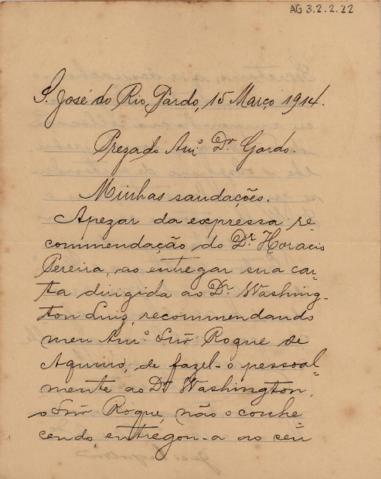 AG 3.2.2.22
S. José do Rio Pardo, 15 Março 1914.
Prezado Amº Dr Gordo.
Minhas saudações.
Apezar da expressa re
commendação do Dr. Horacio
Pereira, ao entregar sua car
ta dirigida ao Dr. Washing-
ton Luis, recommendando
meu Amº Snr Roque de
de fazel-o pessoal-
mente ao Dr Washington,
o Snr Roque, não o conhe
cendo, entregou-a ao seu